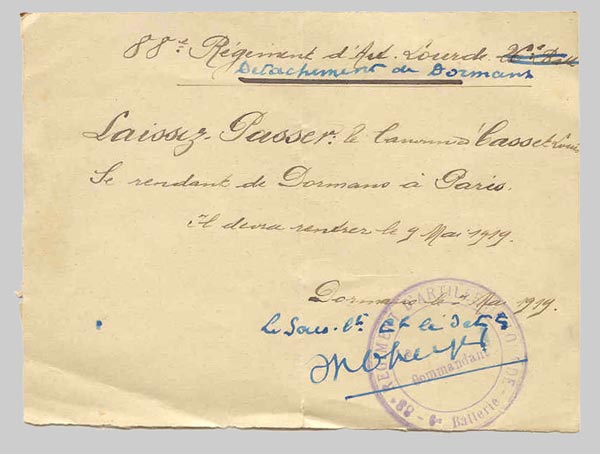 88e Régiment d'Art. Lourde
Détachement de Dormans
Laissez-Passer: le Canonnier Casset Louis
Se rendant de Dormans à Paris.
Il devra rentrer le 9 Mai 1919.
Dormans le Mai 1919.
Le Sous-Lt Ct le Dett
88e REGIMENT D'ARTILLERIE LOURDE
Commandant
Batterie